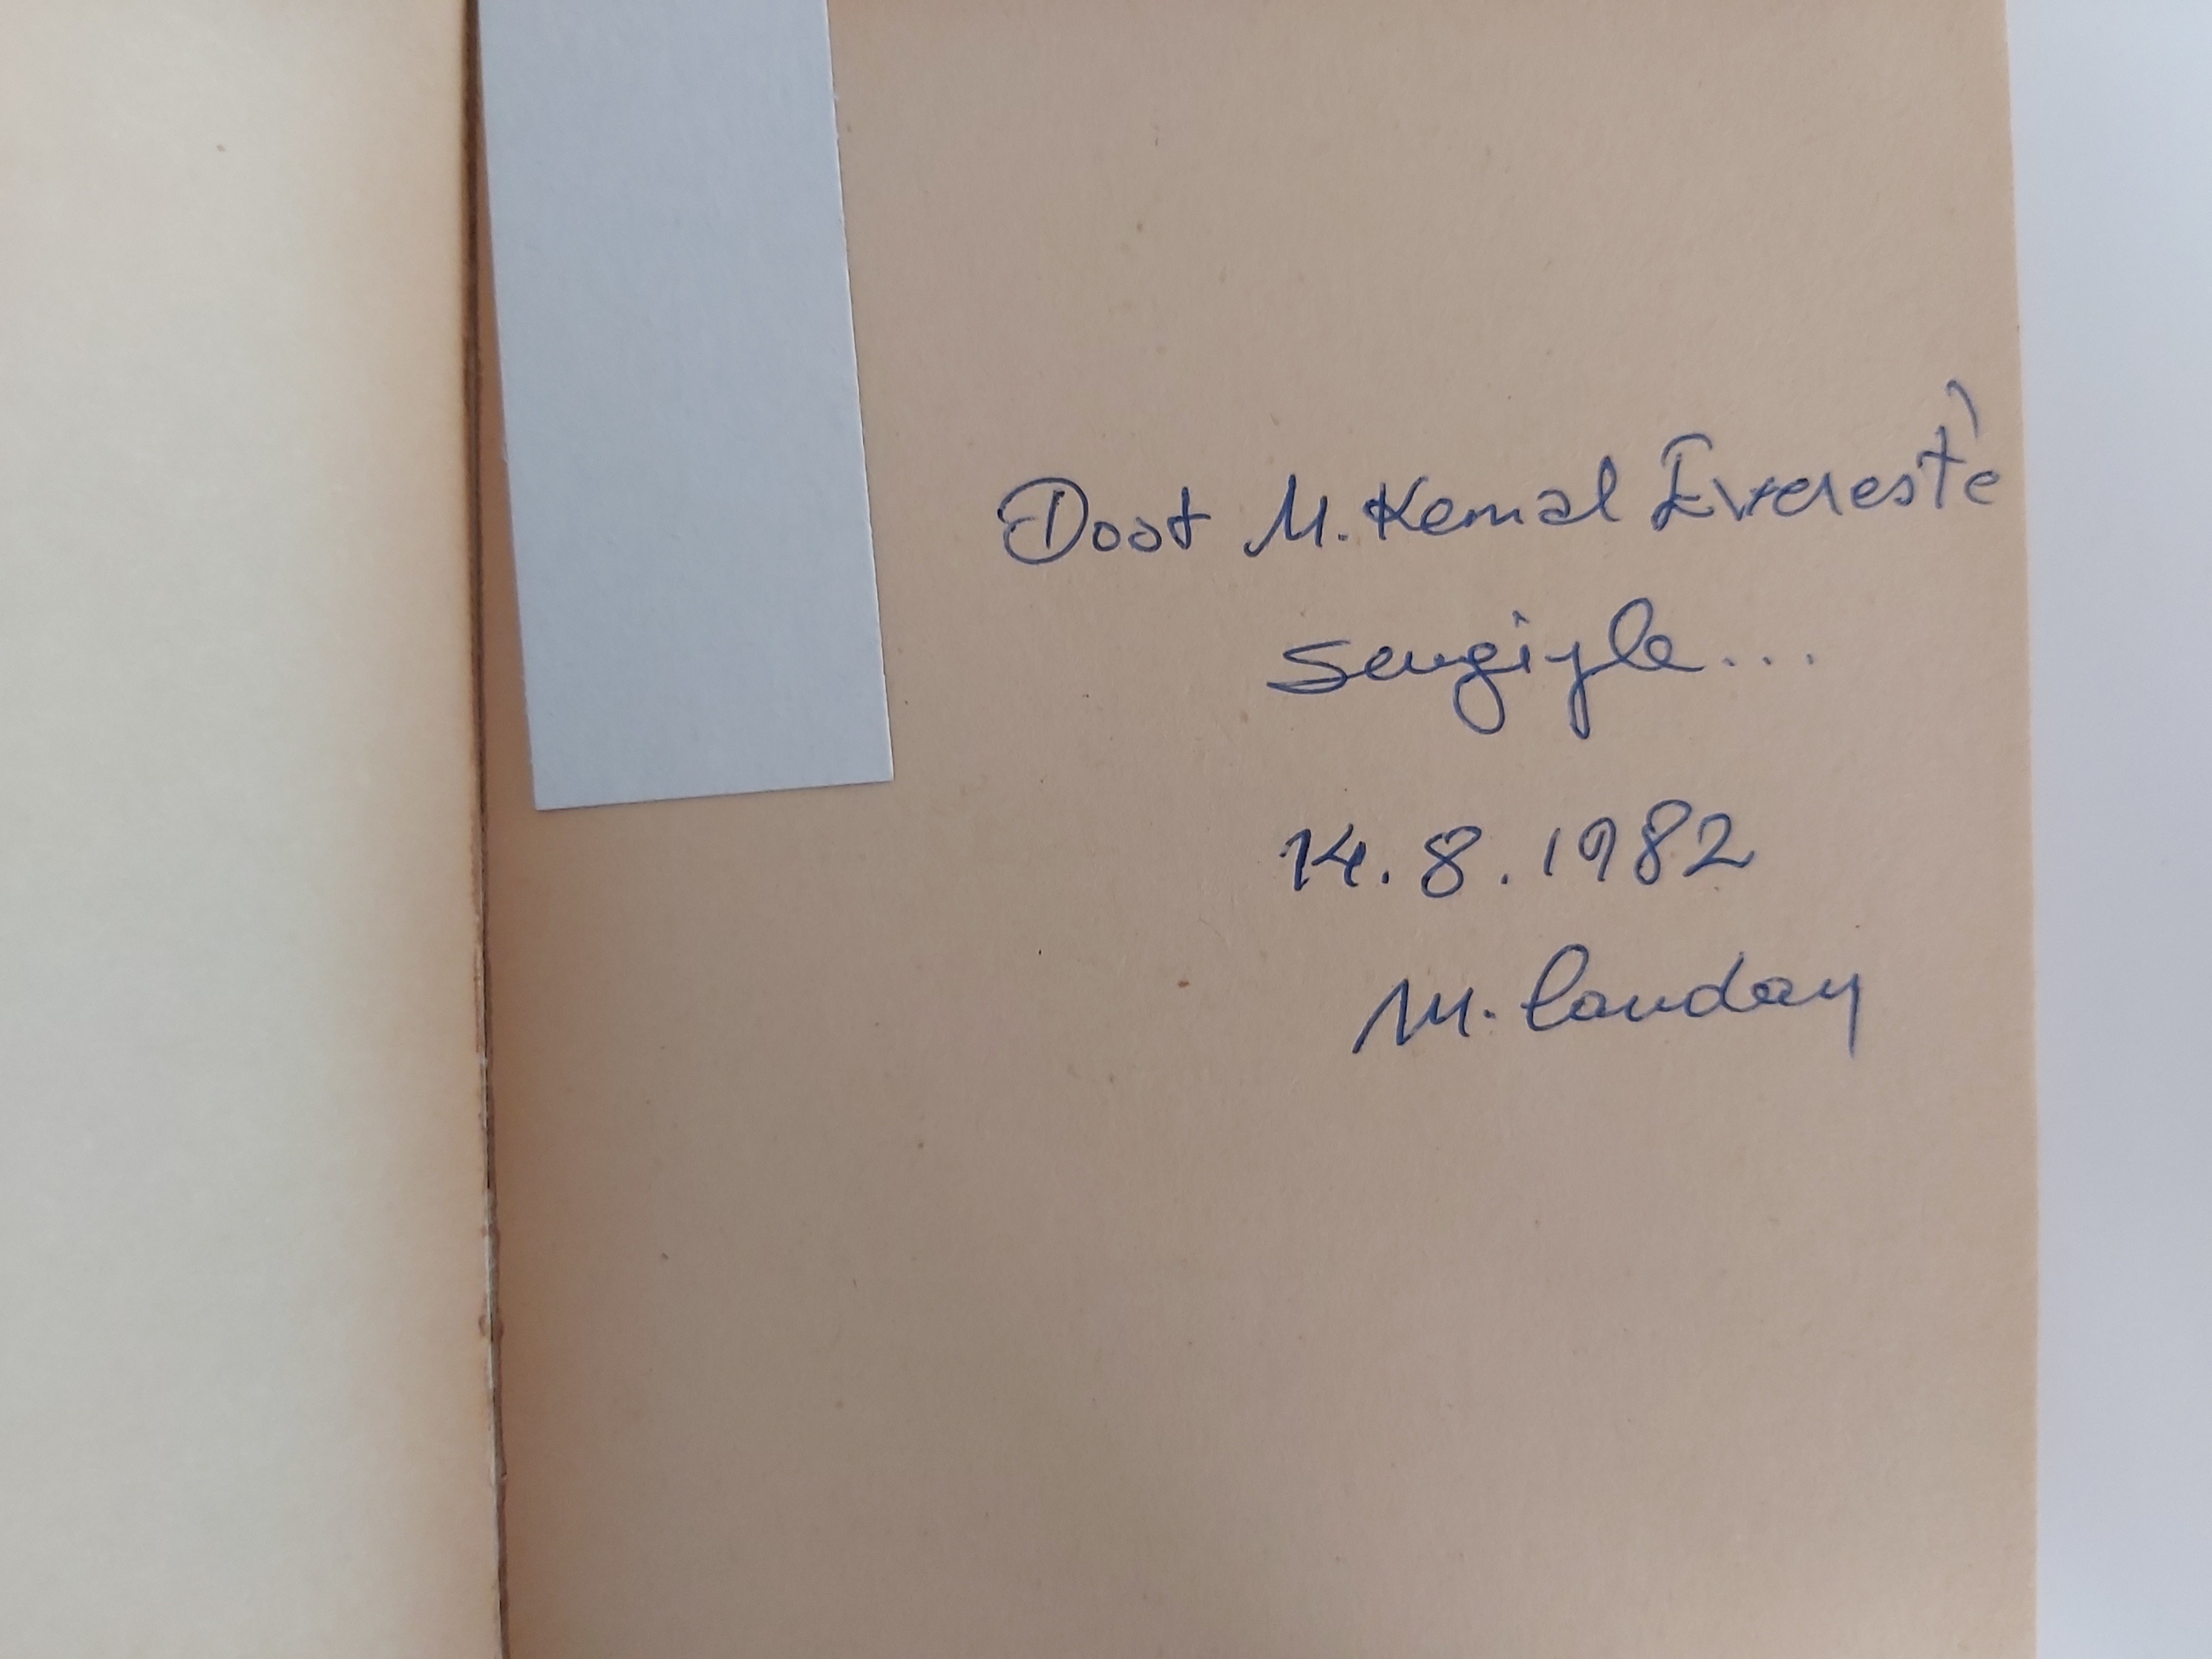 Dost M. Kemal Everest'e
Sevgiyle...
14.8.1982
M. Canday